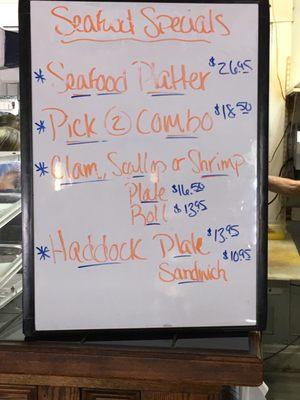 Seafood Specials
* Seafood Platter $26.95
* Pick 2 Combo $18.50
* Clam, Scallop or Shrimp
Plate $16.50
Roll $13.95
* Haddock Plate $13.95
Sandwich $10.95